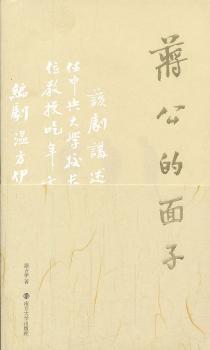 蔣公的面子
該劇講述
任中央大學校長
位教授吃年
編劇 溫方伊
温方伊 著
南京大学出版社